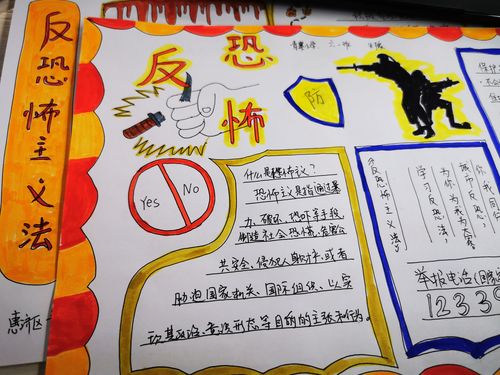 反恐怖主义法
惠济区
反恐怖
青寨小学 六一班
防
Yes No
什么是恐怖主义?
恐怖主义是指通过暴
力、破坏、恐吓等手段,
制造社会恐慌、危害公
共安全、侵犯人身财产,或者
胁迫国家机关、国际组织,以实
现其政治、意识形态等目的的主张和行为。
《反恐怖主义法》
学习反恐法,
为你为我为大家。
城市反恐,
你我同
保护
举报电话
1233